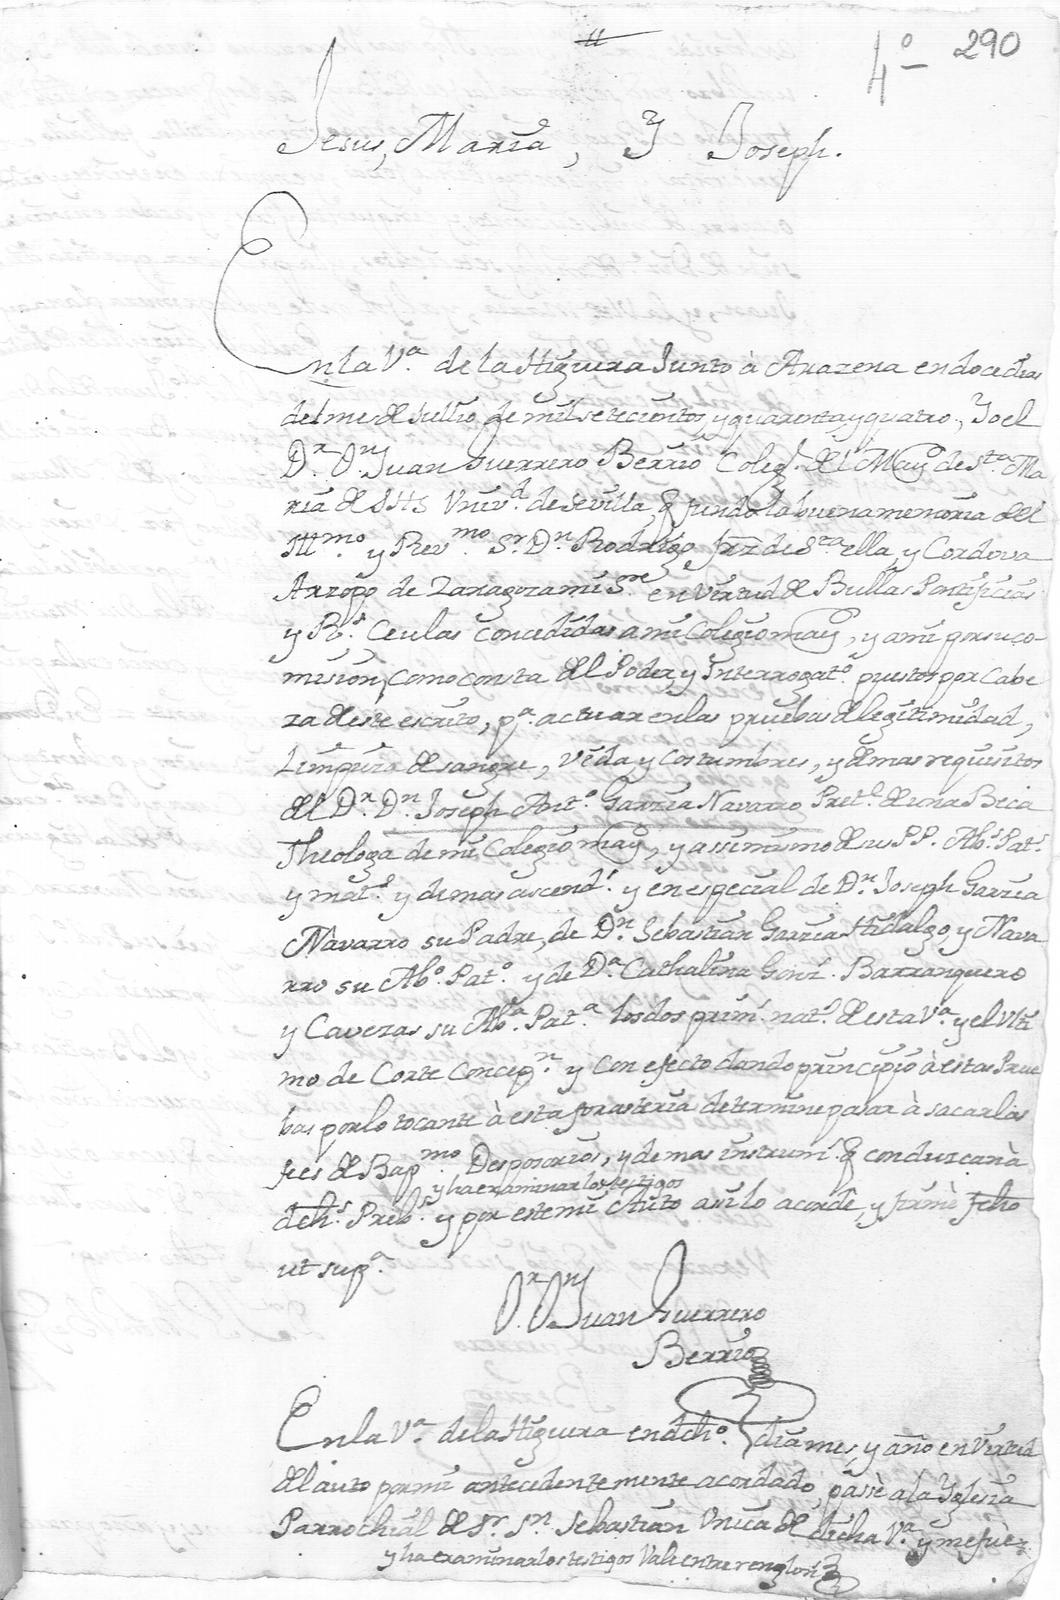 4º 290
Jesus, Maria, Y Joseph.
En la Vª de la Higuera Junto à Arazena en doce dias
del mes de Jullio de mil setecientos, y quarenta y quatro, Yo el
Dr. Dn Juan Guerrero Berrio Coleg.l del May.r de Sta Ma
ria de JHS Univd. de Sevilla, q fundo la buena memoria del
Illmo y Revmo Sr. Dn Rodrigo Frz de Sta ella, y Cordova
Arzopo de Zaragoza mi Sre en virtud de Bullas Pontificias
y Rs. Ceulas concedidas a mi Colegio may.r, y a mi por su co-
mision, como consta del Poder, y Interrogato. puestos por Cabe
za deste escrito, pª. actuar en las pruebas de legitimidad,
Limpieza de sangre, vida y costumbres, y demas requisitos
del Dr. Dn. Joseph Anto. Garzia Navarro Prete. de una Beca
Theologa de mi Colegio may.r, y assimismo de sus PP. Abs. Pats.
y mats. y demas ascends. y en especial de Dn. Joseph Garzia
Navarro su Padre, de Dn. Sebastian Garzia Hidalgo, y Nava
rro su Abo. Pato. y de Dª Cathalina Gonz. Barranquero
y Cavezas su Abª. Patª. los dos prim. nats. de esta Vª. y el Ulti
mo de Corte Concepn. y con efecto dando principio à estas Prue
bas por lo tocante à esta forasteria determine pasar à sacar las
fees de Bapmo. Desposorios, y demas instrum. q conduzcan à
y ha examinar los testigos
dchs. Prebs. y por este mi Auto assi lo acordè, y firmè fcho
ut supª.
Dr. Dn Juan Guerrero
Berrio
En la Vª. de la Higuera en dcho. dia mes, y año en virtud
del auto por mi antecedentemente acordado, passè a la Yglesia
Parrochial de Sr. Sn. Sebastian Unica de dicha Vª. y me fuè
y ha examinar los testigos Vale entre renglons